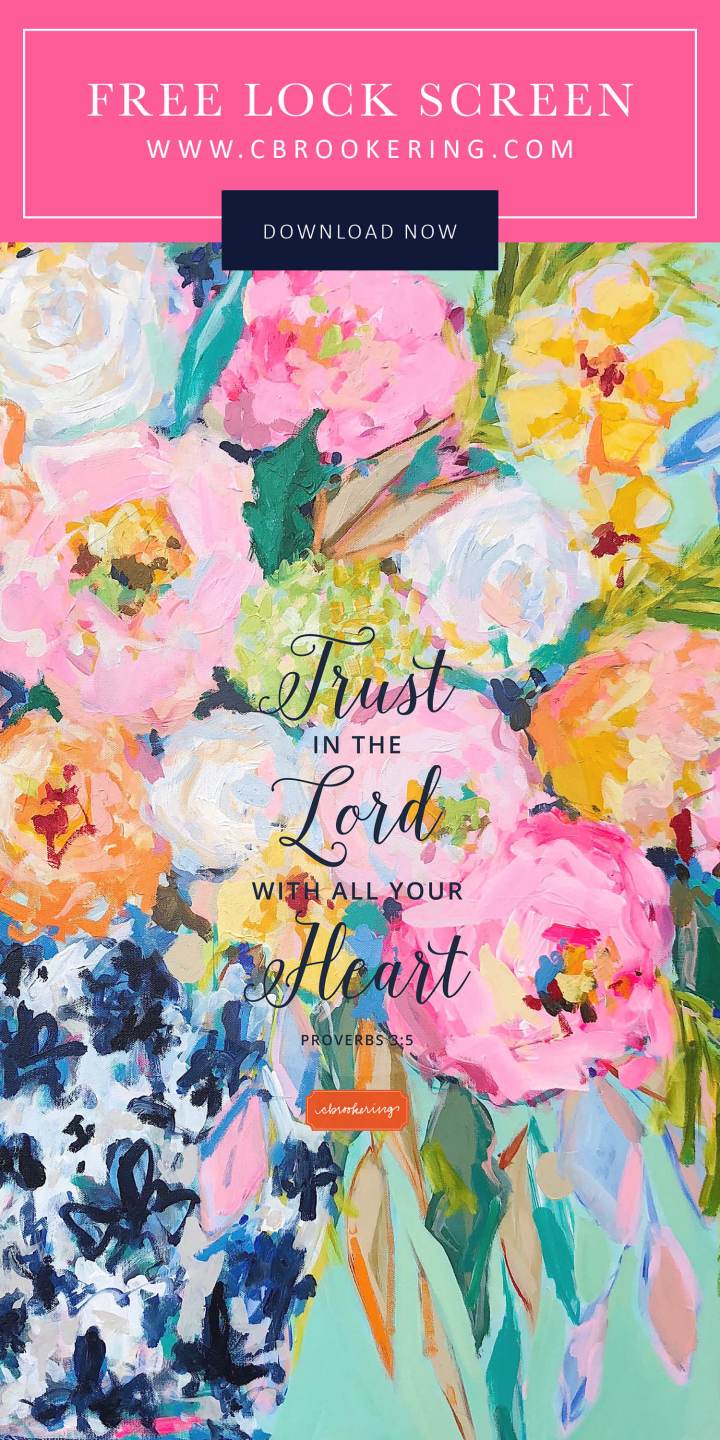 FREE LOCK SCREEN
WWW.CBROOKERING.COM
DOWNLOAD NOW
Trust
IN THE
Lord
WITH ALL YOUR
Heart
PROVERBS 3:5
cbrookering